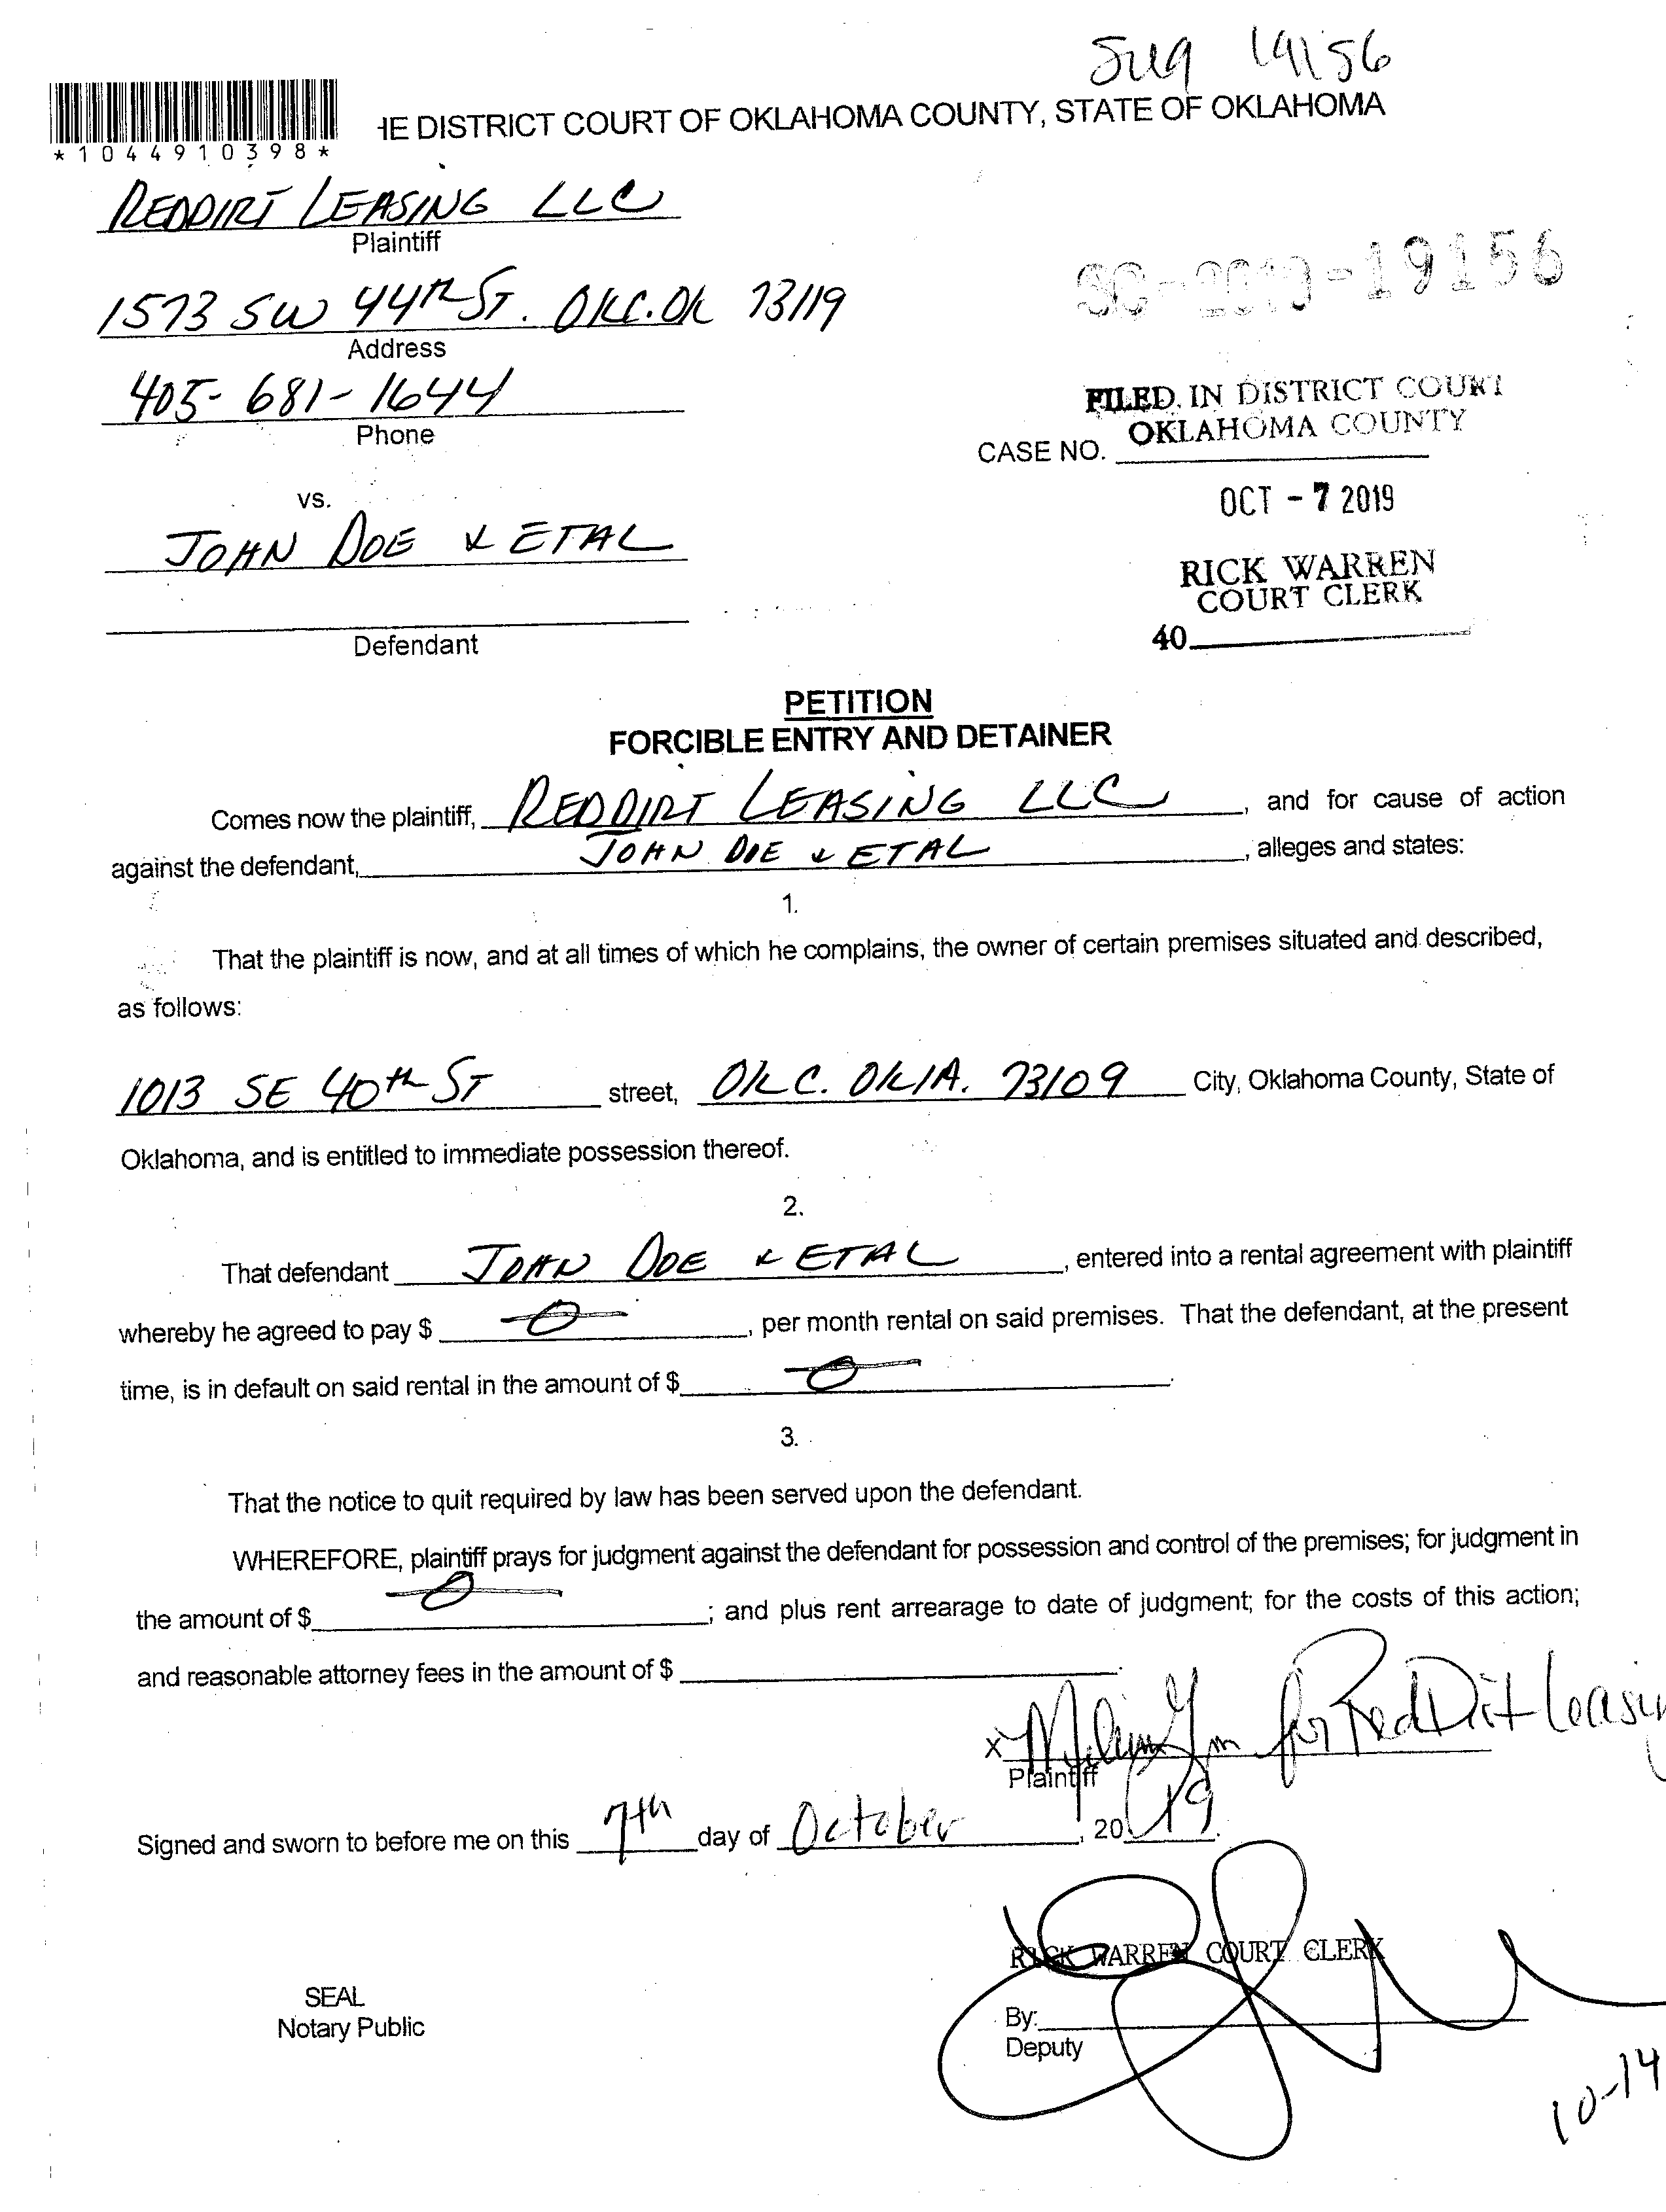 19156
*1044910398*
HE DISTRICT COURT OF OKLAHOMA COUNTY, STATE OF OKLAHOMA
REDDIRT LEASING LLC
Plaintiff
SC-2019-19156
1573 SW 44TH ST. OKC. OK 73119
Address
405-681-1644
Phone
FILED IN DISTRICT COURT
OKLAHOMA COUNTY
CASE NO.
OCT - 7 2019
vs.
JOHN DOE & ETAL
RICK WARREN
COURT CLERK
40
Defendant
PETITION
FORCIBLE ENTRY AND DETAINER
Comes now the plaintiff, REDDIRT LEASING LLC, and for cause of action
against the defendant, JOHN DOE & ETAL, alleges and states:
1.
That the plaintiff is now, and at all times of which he complains, the owner of certain premises situated and described,
as follows:
1013 SE 40th ST street, OKC. OKLA. 73109 City, Oklahoma County, State of
Oklahoma, and is entitled to immediate possession thereof.
2.
That defendant JOHN DOE & ETAL, entered into a rental agreement with plaintiff
whereby he agreed to pay $ 0, per month rental on said premises. That the defendant, at the present
time, is in default on said rental in the amount of $ 0.
3.
That the notice to quit required by law has been served upon the defendant.
WHEREFORE, plaintiff prays for judgment against the defendant for possession and control of the premises; for judgment in
the amount of $ 0; and plus rent arrearage to date of judgment; for the costs of this action;
and reasonable attorney fees in the amount of $ .
x for Red Dirt Leasin
Plaintiff
Signed and sworn to before me on this 7th day of October, 2019.
RICK WARREN COURT CLERK
SEAL
Notary Public
By:
Deputy
10-14